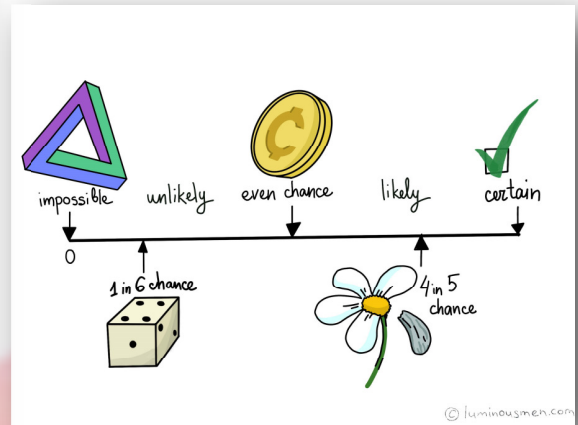 impossible unlikely even chance likely certain
0
1 in 6 chance
4 in 5
chance
© luminousmen.com